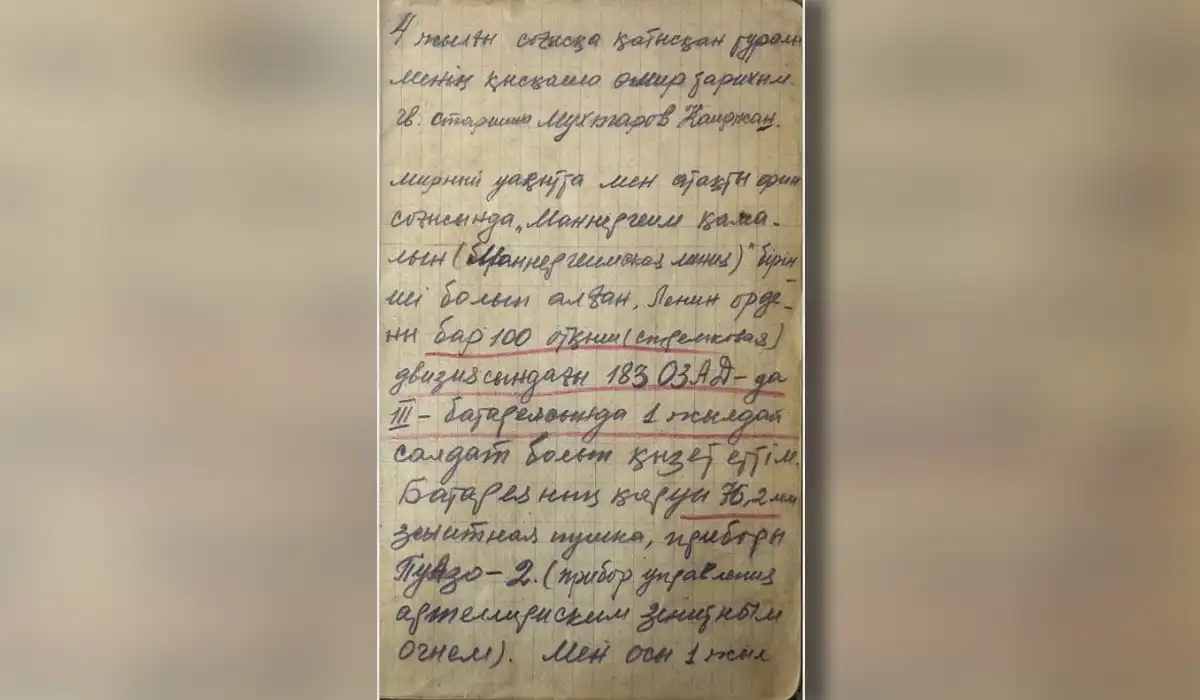 4 жылғы соғысқа қатысқан туралы
менің қысқаша өмир тарихым.
гв. старшина Мухтаров Каиржан.
мирный уақытта мен атақты фин
соғысында „Маннергеим қама-
лын (Маннергеимская линия)" бірін-
ші болып алған, Ленин орде-
ни бар 100 отқыш (стрелковая)
двизиясындағы 183 ОЗАД-да
III - батареясында 1 жылдай
салдат болып қызет еттім.
Батареяның қаруы 76,2 мм
зенитная пушка, приборы
ПУАЗО-2. (прибор управления
артеллириским зенитным
огнем). Мен осы 1 жыл